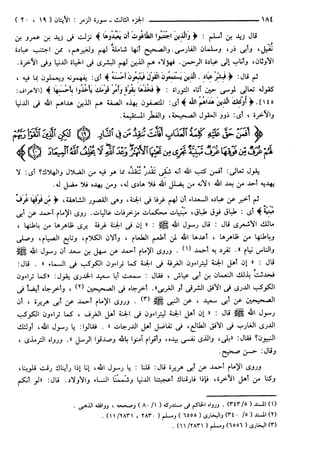 ١٨٤ ــــــــ الجزء الثالث ـ سورة الزمر : الآيتان ( ١٩ ، ٢٠ )
قال زيد بن أسلم : ﴿ وَالَّذِينَ اجْتَنَبُوا الطَّاغُوتَ أَن يَعْبُدُوهَا ﴾ نزلت في زيد بن عمرو بن
نُفَيل، وأبي ذر، وسلمان الفارسي. والصحيح أنها شاملة لهم ولغيرهم، ممن اجتنب عبادة
الأوثان، وأناب إلى عبادة الرحمن. فهؤلاء هم الذين لهم البشرى في الحياة الدنيا وفي الآخرة.
ثم قال: ﴿ فَبَشِّرْ عِبَادِ . الَّذِينَ يَسْتَمِعُونَ الْقَوْلَ فَيَتَّبِعُونَ أَحْسَنَهُ ﴾ أي: يفهمونه ويعملون بما فيه ،
كقوله تعالى لموسى حين آتاه التوراة : ﴿ فَخُذْهَا بِقُوَّةٍ وَأْمُرْ قَوْمَكَ يَأْخُذُوا بِأَحْسَنِهَا ﴾ [الأعراف:
١٤٥]. ﴿ أُوْلَئِكَ الَّذِينَ هَدَاهُمُ اللَّهُ ﴾ أي: المتصفون بهذه الصفة هم الذين هداهم الله في الدنيا
والآخرة ، أي: ذوو العقول الصحيحة، والفطر المستقيمة.
﴿ أَفَمَنْ حَقَّ عَلَيْهِ كَلِمَةُ الْعَذَابِ أَفَأَنتَ تُنقِذُ مَن فِي النَّارِ ﴿١٩﴾ لَكِنِ الَّذِينَ اتَّقَوْا رَبَّهُمْ لَهُمْ غُرَفٌ
مِّن فَوْقِهَا غُرَفٌ مَّبْنِيَّةٌ تَجْرِي مِن تَحْتِهَا الْأَنْهَارُ وَعْدَ اللَّهِ لَا يُخْلِفُ اللَّهُ الْمِيعَادَ ﴿٢٠﴾ ﴾
يقول تعالى: أفمن كتب الله أنه شقي تَقْدرُ تُنْقذُه مما هو فيه من الضلال والهلاك؟ أي: لا
يهديه أحد من بعد الله «لأنه من يضلل الله فلا هادي له، ومن يهده فلا مضل له.
ثم أخبر عن عباده السعداء أن لهم غرفا في الجنة، وهي القصور الشاهقة، ﴿ مِّن فَوْقِهَا غُرَفٌ
مَّبْنِيَّةٌ ﴾ أي : طباق فوق طباق، مبنيات محكمات مزخرفات عاليات. وروى الإمام أحمد عن أبي
مالك الأشعري قال : قال رسول الله ﷺ : « إن في الجنة غرفة يرى ظاهرها من باطنها ،
وباطنها من ظاهرها ، أعدها الله لمن أطعم الطعام ، وألان الكلام، وتابع الصيام، وصلى
والناس نيام ». تفرد به أحمد (١) . وروى الإمام أحمد عن سهل بن سعد أن رسول الله ﷺ
قال : « إن أهل الجنة ليتراءون الغرفة في الجنة كما تراءون الكوكب في السماء » . قال:
فحدثتُ بذلك النعمان بن أبي عياش ، فقال : سمعت أبا سعيد الخدري يقول: «كما تراءون
الكوكب الدري في الأفق الشرقي أو الغربي». أخرجاه في الصحيحين (٢) ، وأخرجاه أيضاً في
الصحيحين عن أبي سعيد ، عن النبي ﷺ (٣) . وروى الإمام أحمد عن أبي هريرة ، أن
رسول الله ﷺ قال : « إن أهل الجنة ليتراءون في الجنة أهل الغرف ، كما تراءون الكوكب
الدري الغارب في الأفق الطالع، في تفاضل أهل الدرجات » . فقالوا: يا رسول الله، أولئك
النبيون؟ فقال: «بلى، والذي نفسي بيده، وأقوام آمنوا بالله وصدقوا الرسل ». ورواه الترمذي ،
وقال: حسن صحيح.
وروى الإمام أحمد عن أبي هريرة قال: قلنا : يا رسول الله، إنا إذا رأيناك رقت قلوبنا،
وكنا من أهل الآخرة، فإذا فارقناك أعجبتنا الدنيا وشَممْنَا النساء والأولاد. قال: «لو أنكم
(١) المسند ( ٥/ ٣٤٣) . ورواه الحاكم في مستدركه ( ١/ ٨٠ ) وصححه ، ووافقه الذهبي .
(٢) المسند ( ٥/ ٣٤٠) والبخاري ( ٦٥٥٥) ومسلم ( ٢٨٣٠ ، ١١/٢٨٣١ ) .
(٣) البخاري ( ٦٥٥٦) ومسلم ( ١١/٢٨٣١ ) .